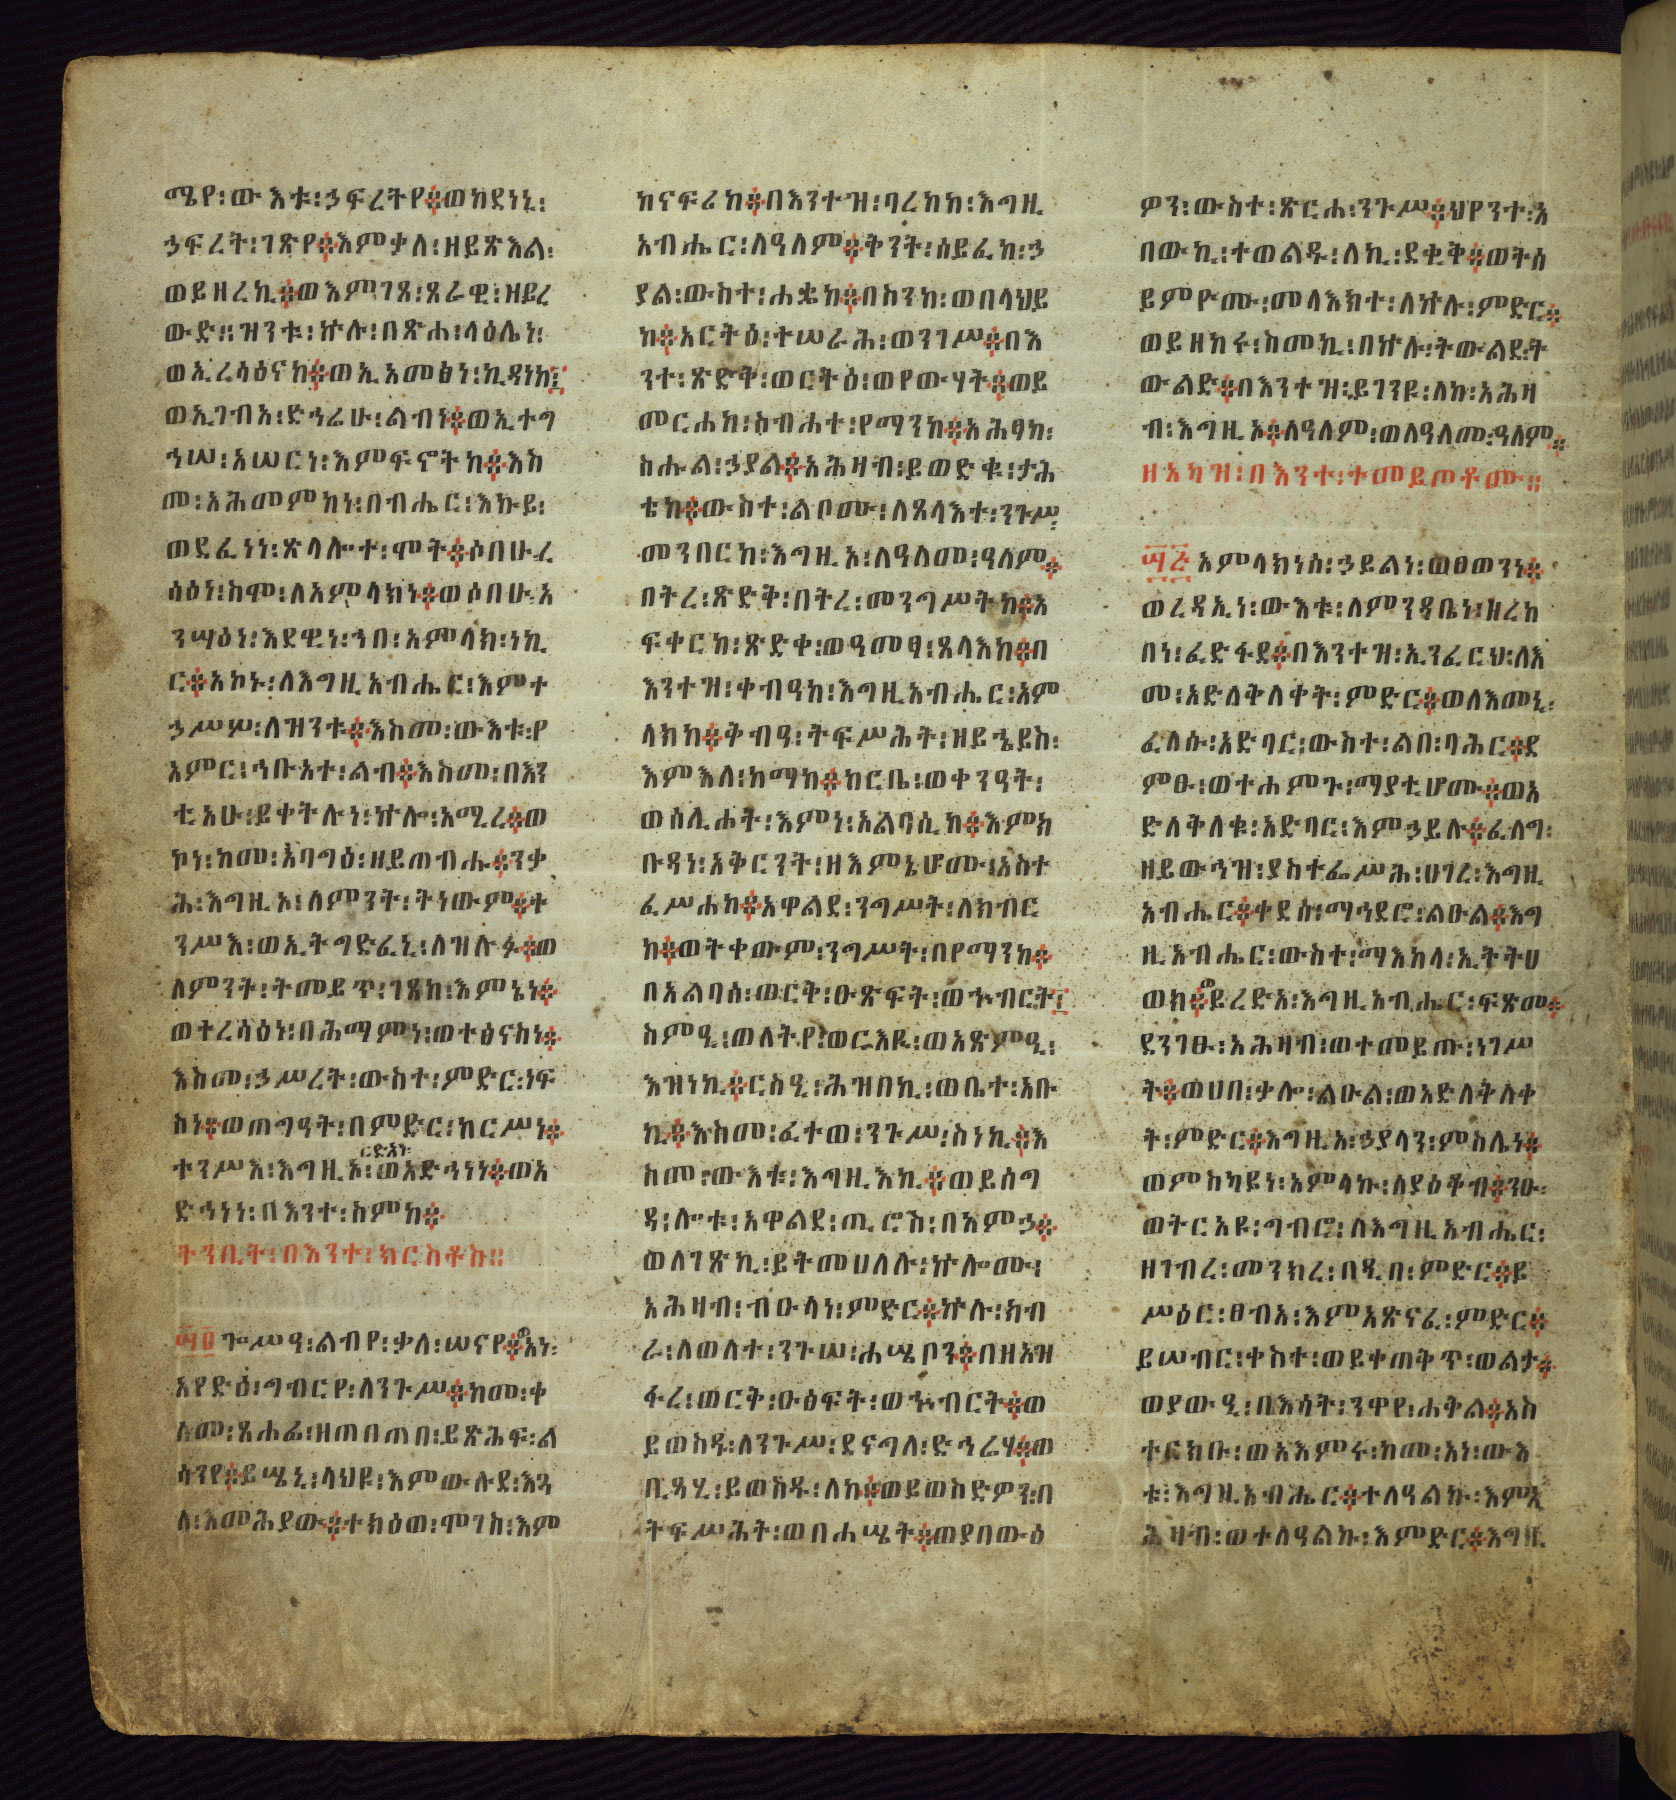 ሜየ፡ውእቱ፡ኃፍረትየ፨ወከደነኒ፡
ኃፍረት፡ገጽየ፨እምቃለ፡ዘይጽእል፡
ወይዘረኪ፨ወእምገጸ፡ጸራዊ፡ዘይረ
ውድ። ዝንቱ፡ኵሉ፡በጽሐ፡ላዕሌነ፡
ወኢረሳዕናከ፨ወኢአመፅነ፡ኪዳነከ፨
ወኢገብአ፡ድኅሬሁ፡ልብነ፨ወኢተግ
ኅሠ፡አሠርነ፡እምፍኖትከ፨እስ
መ፡አሕመምከነ፡በብሔር፡እኩይ፡
ወደፈነነ፡ጽላሎተ፡ሞት፨ሶበሁ፡ረ
ሳዕነ፡ስሞ፡ለአምላክነ፨ወሶበሁ፡አ
ንሣዕነ፡እደዊነ፡ኀበ፡አምላክ፡ነኪ
ር፨አኮኑ፡ለእግዚአብሔር፡እምተ
ኃሥሦ፡ለዝንቱ፨እስመ፡ውእቱ፡የ
አምር፡ኅቡአተ፡ልብ፨እስመ፡በእን
ቲአሁ፡ይቀትሉነ፡ኵሎ፡አሚረ፨ወ
ኮነ፡ከመ፡አባግዕ፡ዘይጠብሑ፨ንቃ
ሕ፡እግዚኦ፡ለምንት፡ትነውም፨ተ
ንሥእ፡ወኢትግድፈኒ፡ለዝሉፉ፨ወ
ለምንት፡ትመይጥ፡ገጸከ፡እምኔነ፨
ወተረሳዕነ፡በሕማምነ፡ወተፅናስነ፨
እስመ፡ኃሥረት፡ውስተ፡ምድር፡ነፍ
ስነ፨ወጠግዓት፡በምድር፡ከርሥነ፨
ተንሥእ፡እግዚኦ፡ርድአነ፡ወአድኅነነ፨ወአ
ድኅነነ፡በእንተ፡ስምከ፨
ትንቢት፡በእንተ፡ክርስቶስ።
፵፬ ጐሥዓ፡ልብየ፡ቃለ፡ሠናየ፨አነ፡
አየድዕ፡ግብርየ፡ለንጉሥ፨ከመ፡ቀ
ለመ፡ጸሐፊ፡ዘጠበጠበ፡ይጽሕፍ፡ል
ሳንየ፨ይሤኒ፡ላህዩ፡እምውሉደ፡እጓ
ለ፡እመሕያው፨ተክዕወ፡ሞገስ፡እም
ከናፍሪከ፨በእንተዝ፡ባረከከ፡እግዚ
አብሔር፡ለዓለም፨ቅንት፡ሰይፈከ፡ኃ
ያል፡ውስተ፡ሐቌከ፨በስንከ፡ወበላህይ
ከ፨አርትዕ፡ተሠራሕ፡ወንገሥ፨በእ
ንተ፡ጽድቅ፡ወርትዕ፡ወየውሃት፨ወይ
መርሐከ፡ስብሐተ፡የማንከ፨አሕፃከ፡
ስሑል፡ኃያል፨አሕዛብ፡ይወድቁ፡ታሕ
ቴከ፨ውስተ፡ልቦሙ፡ለጸላእተ፡ንጉሥ፨
መንበርከ፡እግዚኦ፡ለዓለመ፡ዓለም፨
በትረ፡ጽድቅ፡በትረ፡መንግሥትከ፨አ
ፍቀርከ፡ጽድቀ፡ወዓመፃ፡ጸላእከ፨በ
እንተዝ፡ቀብዓከ፡እግዚአብሔር፡አም
ላክከ፨ቅብዓ፡ትፍሥሕት፡ዘይኄይስ፡
እምእለ፡ከማከ፨ከርቤ፡ወቀንዓት፡
ወሰሊሐት፡እምነ፡አልባሲከ፨እምክ
ቡዳነ፡አቅርንት፡ዘእምኔሆሙ፡አስተ
ፈሥሐከ፨አዋልደ፡ንግሥት፡ለክብር
ከ፨ወትቀውም፡ንግሥት፡በየማንከ፨
በአልባሰ፡ወርቅ፡ዑጽፍት፡ወኍብርት፨
ስምዒ፡ወለትየ፡ወርእዪ፡ወአጽምዒ፡
እዝነኪ፨ርስዒ፡ሕዝበኪ፡ወቤተ፡አቡ
ኪ፨እስመ፡ፈተወ፡ንጉሥ፡ስነኪ፨እ
ስመ፡ውእቱ፡እግዚእኪ፨ወይሰግ
ዳ፡ሎቱ፡አዋልደ፡ጢሮስ፡በአምኃ፨
ወለገጽኪ፡ይትመሀለሉ፡ኵሎሙ፡
አሕዛብ፡ብዑላነ፡ምድር፨ኵሉ፡ክብ
ራ፡ለወለተ፡ንጉሠ፡ሐሤቦን፨በዘአዝ
ፋረ፡ወርቅ፡ዑፅፍት፡ወኍብርት፨ወ
ይወስዱ፡ለንጉሥ፡ደናግለ፡ድኅሬሃ፨ወ
ቢጻሂ፡ይወስዱ፡ለከ፨ወይወስድዎን፡በ
ትፍሥሕት፡ወበሐሤት፨ወያበውዕ
ዎን፡ውስተ፡ጽርሐ፡ንጉሥ፨ህየንተ፡አ
በውኪ፡ተወልዱ፡ለኪ፡ደቂቅ፨ወትሰ
ይምዮሙ፡መላእክተ፡ለኵሉ፡ምድር፨
ወይዘከሩ፡ስመኪ፡በኵሉ፡ትውልደ፡ት
ውልድ፨በእንተዝ፡ይገንዩ፡ለኪ፡አሕዛ
ብ፡እግዚኦ፨ለዓለም፡ወለዓለመ፡ዓለም፨
ዘእካዝ፡በእንተ፡ተመይጦቶሙ።
፵፭ አምላክነሰ፡ኃይልነ፡ወፀወንነ፨
ወረዳኢነ፡ውእቱ፡ለምንዳቤነ፡ዘረከ
በነ፡ፈድፋደ፨በእንተዝ፡ኢንፈርህ፡ለእ
መ፡አድለቅለቀት፡ምድር፨ወለእመኒ፡
ፈለሱ፡አድባር፡ውስተ፡ልበ፡ባሕር፨ደ
ምፁ፡ወተሐምጉ፡ማያቲሆሙ፨ወአ
ድለቅለቁ፡አድባር፡እምኃይሉ፨ፈለግ፡
ዘይውኅዝ፡ያስተፌሥሕ፡ሀገረ፡እግዚ
አብሔር፨ቀደሰ፡ማኅደሮ፡ልዑል፨እግ
ዚአብሔር፡ውስተ፡ማእከላ፡ኢትትሀ
ወክ፨ይረድአ፡እግዚአብሔር፡ፍጽመ፨
ደንገፁ፡አሕዛብ፡ወተመይጡ፡ነገሥ
ት፨ወሀበ፡ቃሎ፡ልዑል፡ወአድለቅለቀ
ት፡ምድር፨እግዚአ፡ኃያላን፡ምስሌነ፨
ወምስካይነ፡አምላኩ፡ለያዕቆብ፨ንዑ፡
ወትርአዩ፡ግብሮ፡ለእግዚአብሔር፡
ዘገብረ፡መንክረ፡በዲበ፡ምድር፨ይ
ሥዕር፡ፀብአ፡እምአጽናፈ፡ምድር፨
ይሠብር፡ቀስተ፡ወይቀጠቅጥ፡ወልታ፨
ወያውዒ፡በእሳት፡ንዋየ፡ሐቅል፨አስ
ተርክቡ፡ወአእምሩ፡ከመ፡አነ፡ውእ
ቱ፡እግዚአብሔር፨ተለዓልኩ፡እምአ
ሕዛብ፡ወተለዓልኩ፡እምድር፨እግዚ